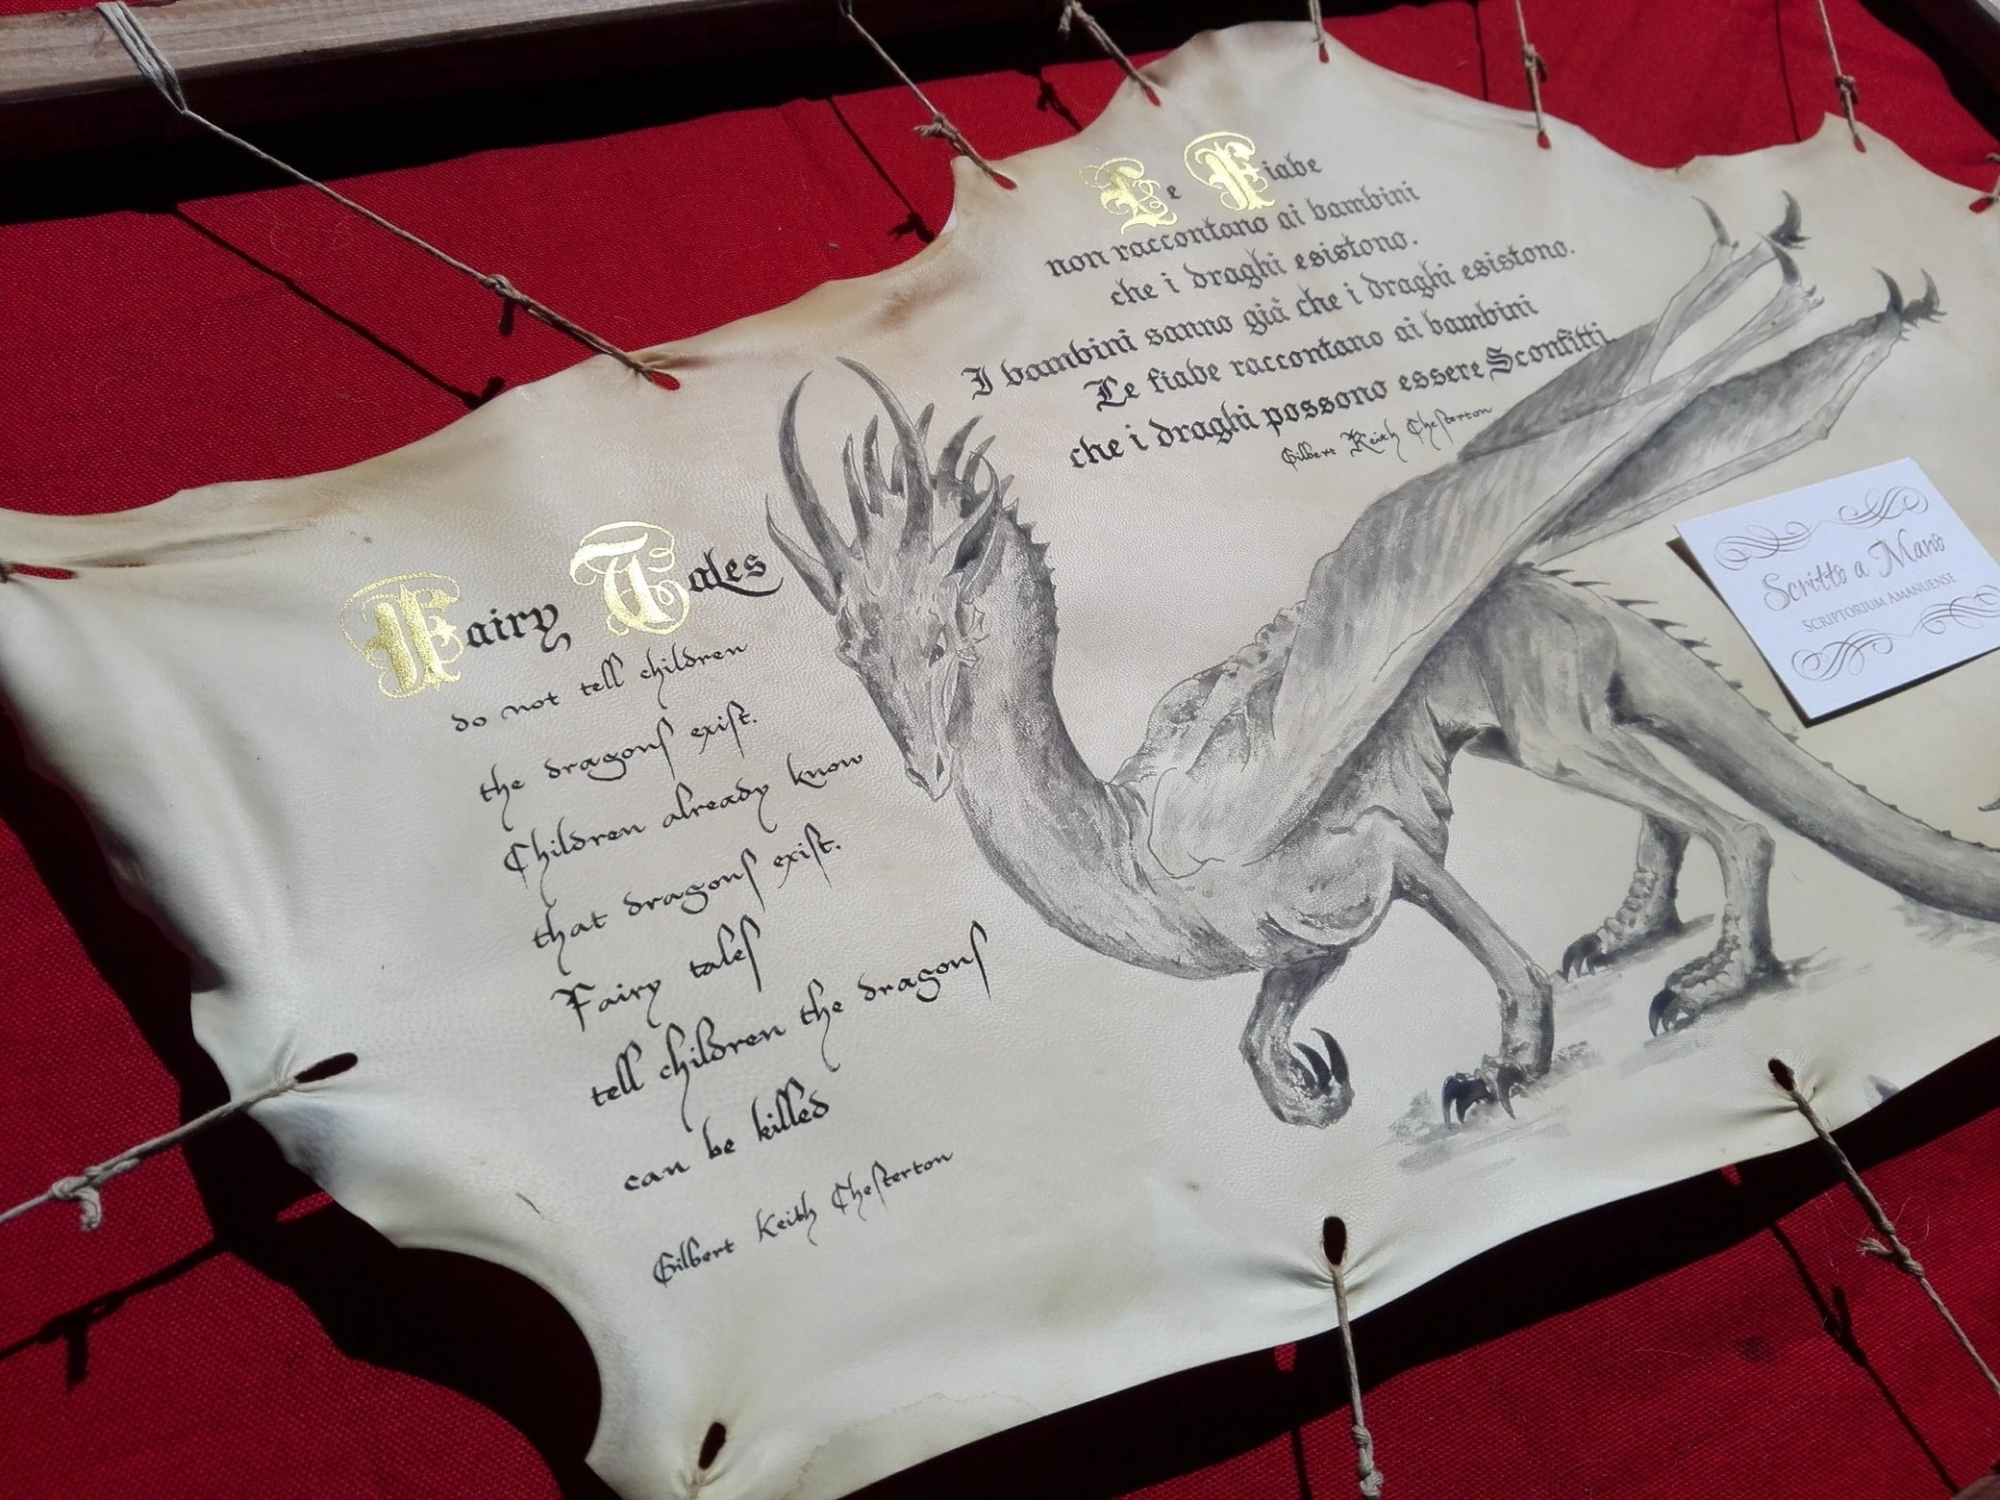 Le Fiabe
non raccontano ai bambini
che i draghi esistono.
I bambini sanno già che i draghi esistono.
Le fiabe raccontano ai bambini
che i draghi possono essere Sconfitti
Gilbert Keith Chesterton
Fairy Tales
do not tell children
the dragonſ exiſt.
Children already know
that dragonſ exiſt.
Fairy taleſ
tell children the dragonſ
can be killed
Gilbert Keith Cheſterton
Scritto a Mano
SCRIPTORIUM AMANUENSE